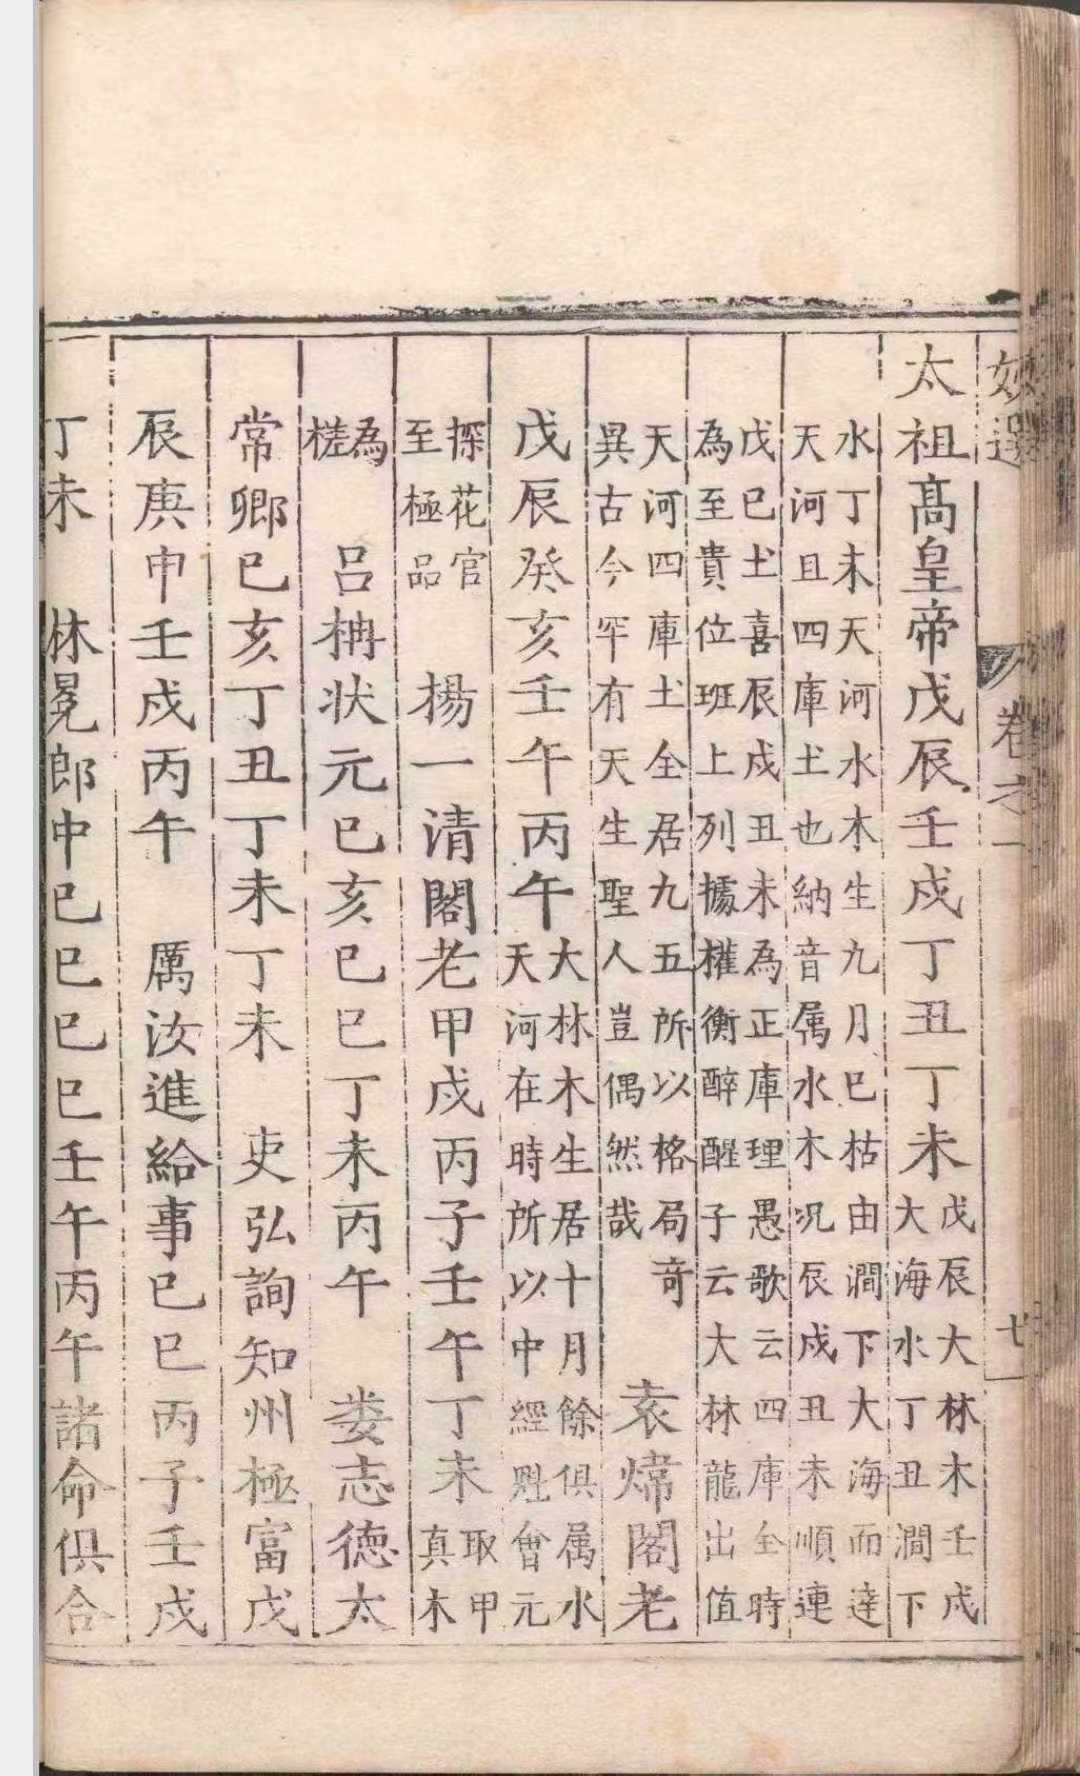 妙選 卷之一 七
太祖髙皇帝戊辰壬戌丁丑丁未戊辰大林木壬戌
大海水丁丑澗下
水丁未天河水木生九月巳枯由澗下大海而達
天河且四庫土也納音属水木况辰戌丑未順連
戊巳土喜辰戌丑未為正庫理愚歌云四庫全時
為至貴位班上列據權衡醉醒子云大林龍出值
天河四庫土全居九五所以格局竒
異古今罕有天生聖人豈偶然哉
袁煒閣老
戊辰癸亥壬午丙午大林木生居十月餘俱属水
天河在時所以中經魁會元
探花官
至極品
揚一清閣老甲戌丙子壬午丁未取甲
真木
為
槎
吕柟状元巳亥巳巳丁未丙午 婁志德太
常卿巳亥丁丑丁未丁未 吏弘詢知州極富戊
辰庚申壬戌丙午 厲汝進給事巳巳丙子壬戌
丁未 林冕郎中巳巳巳巳壬午丙午諸命俱合